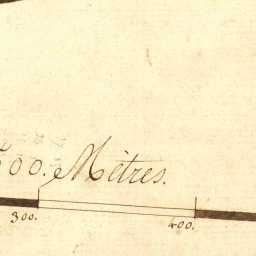 00. Mètres.
300. 400.